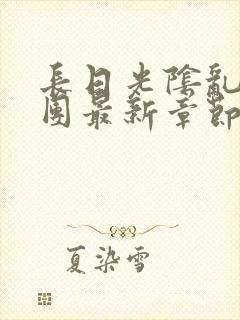 長日光陰亂
團最新章節
夏染雪